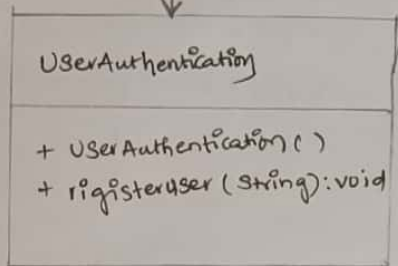 UserAuthentication
+ UserAuthentication()
+ rigisteruser (String): void